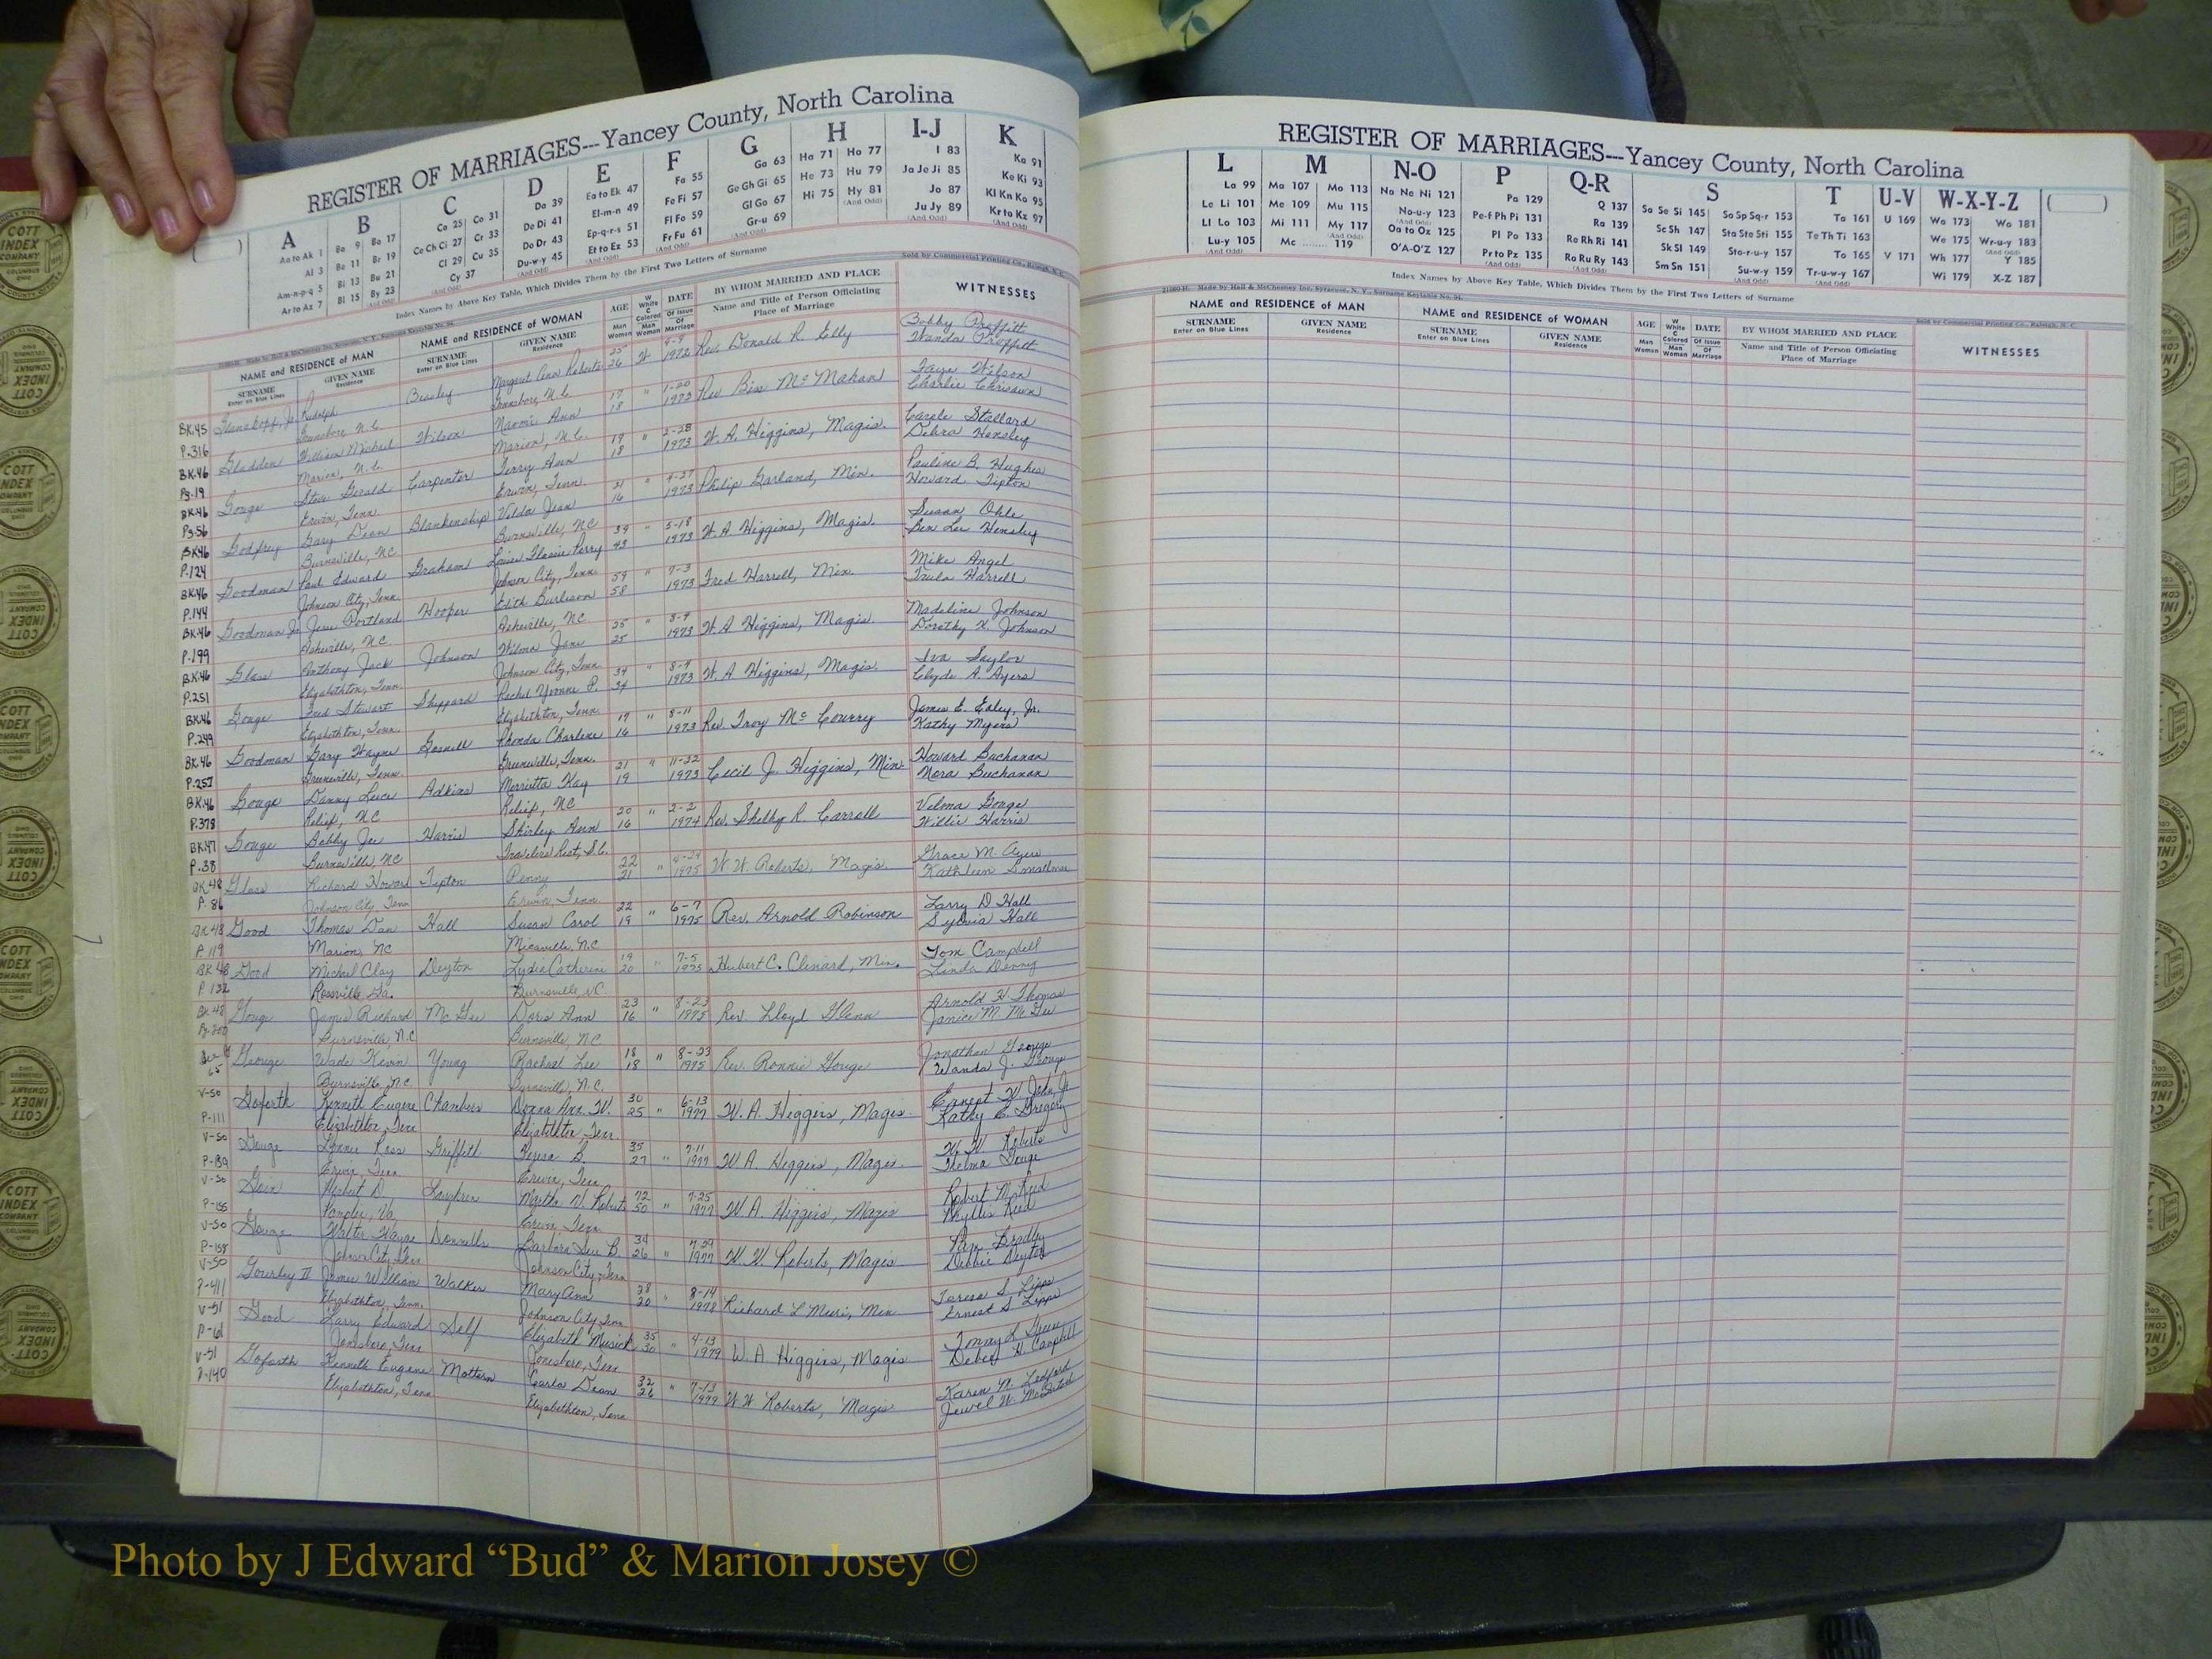 REGISTER OF MARRIAGES---Yancey County, North Carolina
A B C D E F G H I-J K
Aa to Ak 1
Al 3
Am-n-p-q 5
Ar to Az 7
Ba 9 Bo 17
Be 11 Br 19
Bi 13 Bu 21
Bl 15 By 23
Ca 25 Co 31
Ce Ch Ci 27 Cr 33
Cl 29 Cu 35
Cy 37
Da 39
De Di 41
Do Dr 43
Du-w-y 45
Ea to Ek 47
El-m-n 49
Ep-q-r-s 51
Et to Ez 53
Fa 55
Fe Fi 57
Fl Fo 59
Fr Fu 61
Ga 63
Ge Gh Gi 65
Gl Go 67
Gr-u 69
Ha 71 Ho 77
He 73 Hu 79
Hi 75 Hy 81
I 83
Ja Je Ji 85
Jo 87
Ju Jy 89
Ka 91
Ke Ki 93
Kl Kn Ko 95
Kr to Kz 97
Index Names by Above Key Table, Which Divides Them by the First Two Letters of Surname
Sold by Commercial Printing Co., Raleigh, N. C.
NAME and RESIDENCE of MAN
SURNAME
Enter on Blue Lines
GIVEN NAME
Residence
NAME and RESIDENCE of WOMAN
SURNAME
Enter on Blue Lines
GIVEN NAME
Residence
AGE
Man
Woman
W
White
C
Colored
Man
Woman
DATE
Of Issue
Of
Marriage
BY WHOM MARRIED AND PLACE
Name and Title of Person Officiating
Place of Marriage
WITNESSES
BK.45 Rudolph Beasley Margaret Ann Roberts 25 26 W 1972 Rev. Donald R. Elly Bobby Proffitt
P.316 Greensboro, N.C. Greensboro, N.C. Wanda Proffitt
BK.46 Gladden William Michael Wilson Naomi Ann 17 18 " 1-20 1973 Rev. McMahan Faye Wilson
Pg.19 Marion, N.C. Marion, N.C. Charlie Chrisawn
BK.46 Gouge Steve Gerald Carpenter Terry Ann 19 18 " 2-28 1973 W. A. Higgins, Magis. Carole Stallard
Pg.56 Erwin, Tenn. Erwin, Tenn. Debra Hensley
BK.46 Godfrey Gary Dean Blankenship Velda Jean 21 16 " 4-27 1973 Philip Garland, Min. Pauline B. Hughes
P.124 Burnsville, NC Burnsville, NC Howard Tipton
BK.46 Goodman Paul Edward Graham Perry 39 43 " 5-18 1973 W. A. Higgins, Magis. Susan Ohle
P.144 Johnson City, Tenn. Johnson City, Tenn. Ben Lee Hensley
BK.46 Goodman Jr. Jesse Portland Hooper Edith Burleson 59 58 " 7-3 1973 Fred Harrell, Min. Mike Angel
P.199 Asheville, NC Asheville, NC Trula Harrell
BK.46 Glass Anthony Jack Johnson Wilma Jane 25 25 " 8-9 1973 W. A. Higgins, Magis. Madeline Johnson
P.251 Elizabethton, Tenn. Johnson City, Tenn. Dorothy Johnson
BK.46 Gouge Fred Stewart Sheppard Rachel Yvonne P. 34 34 " 8-9 1973 W. A. Higgins, Magis. Iva Saylor
P.249 Elizabethton, Tenn. Elizabethton, Tenn. Clyde A. Ayers
BK.46 Goodman Gary Wayne Gosnell Rhonda Charlene 17 16 " 8-11 1973 Rev. Troy McCourry James E. Ealey, Jr.
P.257 Greeneville, Tenn. Greeneville, Tenn. Kathy Myers
BK.46 Gouge Danny Luce Adkins Merrietta Kay 21 19 " 11-22 1973 Cecil J. Higgins, Min. Howard Buchanan
P.378 Relief, NC Relief, NC Nora Buchanan
BK.47 Gouge Bobby Joe Harris Shirley Ann 20 16 " 2-2 1974 Rev. Shelby R. Carroll Velma Gouge
P.38 Burnsville, NC Travelers Rest, S.C. Willie Harris
BK 48 Glass Richard Howard Tipton Penny 22 21 " 4-24 1975 W. W. Roberts, Magis. Grace M. Ayers
P. 86 Johnson City, Tenn Erwin, Tenn Kathleen
BK 48 Good Thomas Dan Hall Susan Carol 22 19 " 6-7 1975 Rev. Arnold Robinson Larry D Hall
P. 119 Marion, NC Micaville, N.C Sylvia Hall
BK 48 Good Michael Clay Deyton Lydia Catherine 19 20 " 7-5 1975 Hubert C. Clinard, Min. Tom Campbell
P 132 Rossville Ga. Burnsville, NC Linda Denny
BK 48 Gouge James Richard McGee Doris Ann 23 16 " 8-23 1975 Rev. Lloyd Glenn Arnold H Thomas
Burnsville, N.C Burnsville, N.C Janice M. McGee
65 George Wade Kevin Young Rachael Lee 18 18 " 8-23 1975 Rev. Ronnie Gouge Jonathan George
Burnsville, N.C. Burnsville, N.C. Wanda J. George
V-50 Goforth Kenneth Eugene Chambers Donna Ann W. 30 25 " 6-13 1977 W. A. Higgins, Magis. Ernest W.
P-111 Elizabethton, Tenn Elizabethton, Tenn. Kathy E. Gregory
V-50 Gouge Ross Griffith B. 35 27 " 7-11 1977 W A. Higgins, Magis. W. W. Roberts
Erwin, Tenn Erwin, Tenn Thelma Gouge
V-50 Goin Herbert D. Martha V. Roberts 72 50 " 7-25 1977 W. A. Higgins, Magis Robert M. Reed
P-155 Va. Erwin, Tenn. Phyllis Reed
V-50 Gouge Walter Wayne Donnells Barbara Sue B. 34 26 " 7-29 1977 W. W. Roberts, Magis Pam Bradley
Johnson City, Tenn Johnson City, Tenn Debbie Deyton
V-50 Gourley II James William Walker Mary Ann 28 20 " 8-14 1978 Richard L Min Teresa S. Lipps
P-411 Elizabethton, Tenn. Johnson City, Tenn Ernest S Lipps
V-51 Good Larry Edward Self Elizabeth Musick 35 30 " 4-13 1979 W. A. Higgins, Magis
P-61 Jonesboro, Tenn Jonesboro, Tenn
V-51 Goforth Kenneth Eugene Mottern Carla Dean 32 26 " 7-13 1979 W W Roberts, Magis Karen N. Ledford
P-140 Elizabethton, Tenn Elizabethton, Tenn Jewel W.
REGISTER OF MARRIAGES---Yancey County, North Carolina
L M N-O P Q-R S T U-V W-X-Y-Z ( )
La 99
Le Li 101
Ll Lo 103
Lu-y 105
Ma 107 Mo 113
Me 109 Mu 115
Mi 111 My 117
Mc ........ 119
Na Ne Ni 121
No-u-y 123
Oa to Oz 125
O'A-O'Z 127
Pa 129
Pe-f Ph Pi 131
Pl Po 133
Pr to Pz 135
Q 137
Ra 139
Re Rh Ri 141
Ro Ru Ry 143
Sa Se Si 145 So Sp Sq-r 153
Sc Sh 147 Sta Ste Sti 155
Sk Sl 149 Sto-r-u-y 157
Sm Sn 151 Su-w-y 159
Ta 161
Te Th Ti 163
To 165
Tr-u-w-y 167
U 169
V 171
Wa 173 Wo 181
We 175 Wr-u-y 183
Wh 177 Y 185
Wi 179 X-Z 187
Index Names by Above Key Table, Which Divides Them by the First Two Letters of Surname
Made by Hall & McChesney Inc. Syracuse, N. Y., Surname Keytable No. 94.
Sold by Commercial Printing Co., Raleigh, N. C.
NAME and RESIDENCE of MAN
SURNAME
Enter on Blue Lines
GIVEN NAME
Residence
NAME and RESIDENCE of WOMAN
SURNAME
Enter on Blue Lines
GIVEN NAME
Residence
AGE
Man
Woman
W
White
C
Colored
Man
Woman
DATE
Of Issue
Of
Marriage
BY WHOM MARRIED AND PLACE
Name and Title of Person Officiating
Place of Marriage
WITNESSES
COTT
INDEX
COMPANY
COLUMBUS
OHIO
Photo by J Edward “Bud” & Marion Josey ©